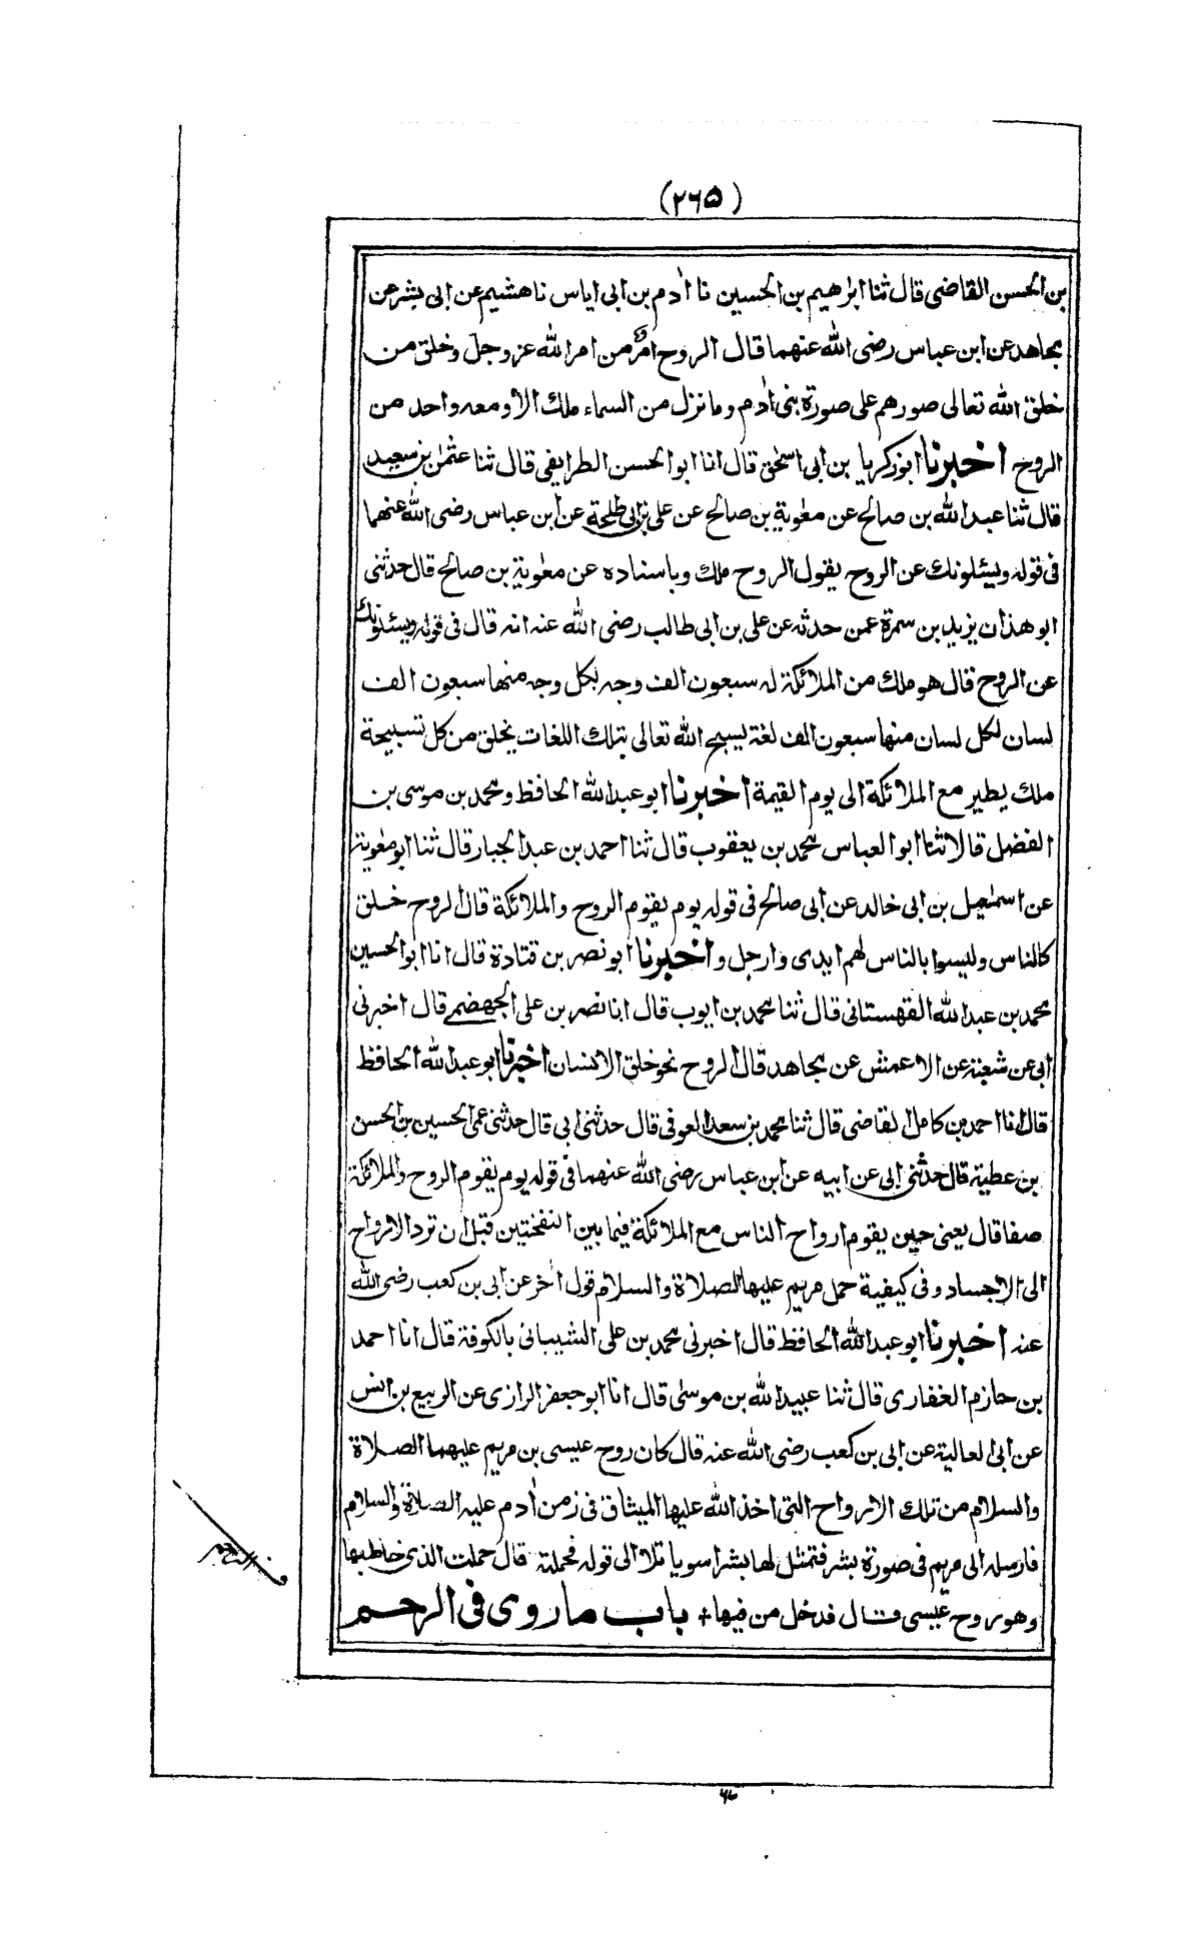 (۲۶۵)
بن الحسن القاضی قال ثنا ابراهیم بن الحسین نا اٰدم بن ابی ایاس نا هشیم عن ابی بشر عن
مجاهد عن ابن عباس رضی الله عنهما قال الروح امرٌ من امر الله عز وجل وخلق من
خلق الله تعالی صورهم علی صورة بنی اٰدم وما نزل من السماء ملك الا ومعه واحد من
الروح اخبرنا ابو زکریا بن ابی اسحٰق قال انا ابو الحسن الطرایفی قال ثنا عثمٰن بن سعید
قال ثنا عبد الله بن صالح عن معٰویة بن صالح عن علی بن ابی طلحة عن ابن عباس رضی الله عنهما
فی قوله ویسئلونك عن الروح یقول الروح ملك وباسناده عن معٰویة بن صالح قال حدثنی
ابو هذان یزید بن سمرة عمن حدثه عن علی بن ابی طالب رضی الله عنه انه قال فی قوله ویسئلونك
عن الروح قال هو ملك من الملائکة له سبعون الف وجه لکل وجه منها سبعون الف
لسان لکل لسان منها سبعون الف لغة یسبح الله تعالی بتلك اللغات یخلق من کل تسبیحة
ملك یطیر مع الملائکة الی یوم القیمة اخبرنا ابو عبد الله الحافظ ومحمد بن موسی بن
الفضل قالا ثنا ابو العباس محمد بن یعقوب قال ثنا احمد بن عبد الجبار قال ثنا ابو معٰویة
عن اسمٰعیل بن ابی خالد عن ابی صالح فی قوله یوم یقوم الروح والملائکة قال الروح خلق
کالناس ولیسوا بالناس لهم ایدی وارجل واخبرنا ابو نصر بن قتادة قال انا ابو الحسین
محمد بن عبد الله القهستانی قال ثنا محمد بن ایوب قال انا نصر بن علی الجهضمی قال اخبرنی
ابی عن شعبة عن الاعمش عن مجاهد قال الروح نحو خلق الانسان اخبرنا ابو عبد الله الحافظ
قال انا احمد بن کامل القاضی قال ثنا محمد بن سعد العوفی قال حدثنی ابی قال حدثنی عمی الحسین بن الحسن
بن عطیة قال حدثنی ابی عن ابیه عن ابن عباس رضی الله عنهما فی قوله یوم یقوم الروح والملائکة
صفا قال یعنی حین یقوم ارواح الناس مع الملائکة فیما بین النفختین قبل ان ترد الارواح
الی الاجساد وفی کیفیة حمل مریم علیها الصلاة والسلام قول اٰخر عن ابی بن کعب رضی الله
عنه اخبرنا ابو عبد الله الحافظ قال اخبرنی محمد بن علی الشیبانی بالکوفة قال انا احمد
بن حازم الغفاری قال ثنا عبید الله بن موسٰی قال انا ابو جعفر الرازی عن الربیع بن انس
عن ابی العالیة عن ابی بن کعب رضی الله عنه قال کان روح عیسی بن مریم علیهما الصلاة
والسلام من تلك الارواح التی اخذ الله علیها المیثاق فی زمن اٰدم علیه الصلاة والسلام
فارسله الی مریم فی صورة بشر فتمثل لها بشرا سویا تلا الی قوله فحملته قال حملت الذی خاطبها
وهو روح عیسی قال فدخل من فیها + باب ما روی فی الرحم